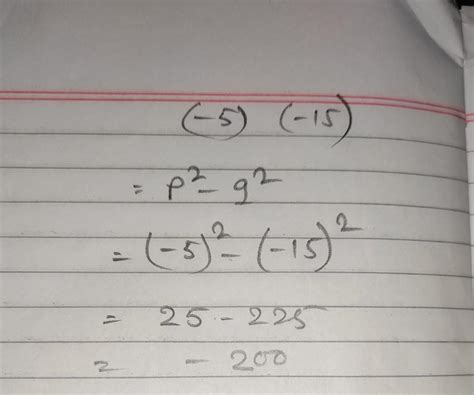 (-5) (-15)
= p² - q²
= (-5)² - (-15)²
= 25 - 225
= - 200